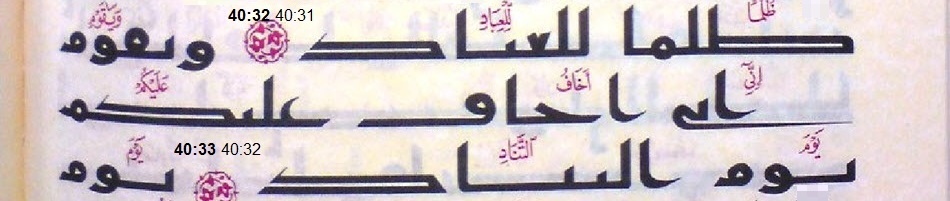 ظلما للعباد 40:32 40:31 ويقوم
انى اخاف عليكم
يوم التناد 40:33 40:32 يوم